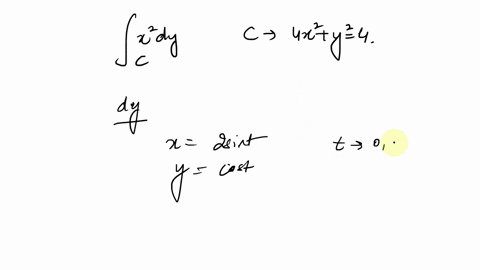 ∫_C x²dy C → 4x²+y²=4.
dy
x = 2sint t → 0, .
y = cost